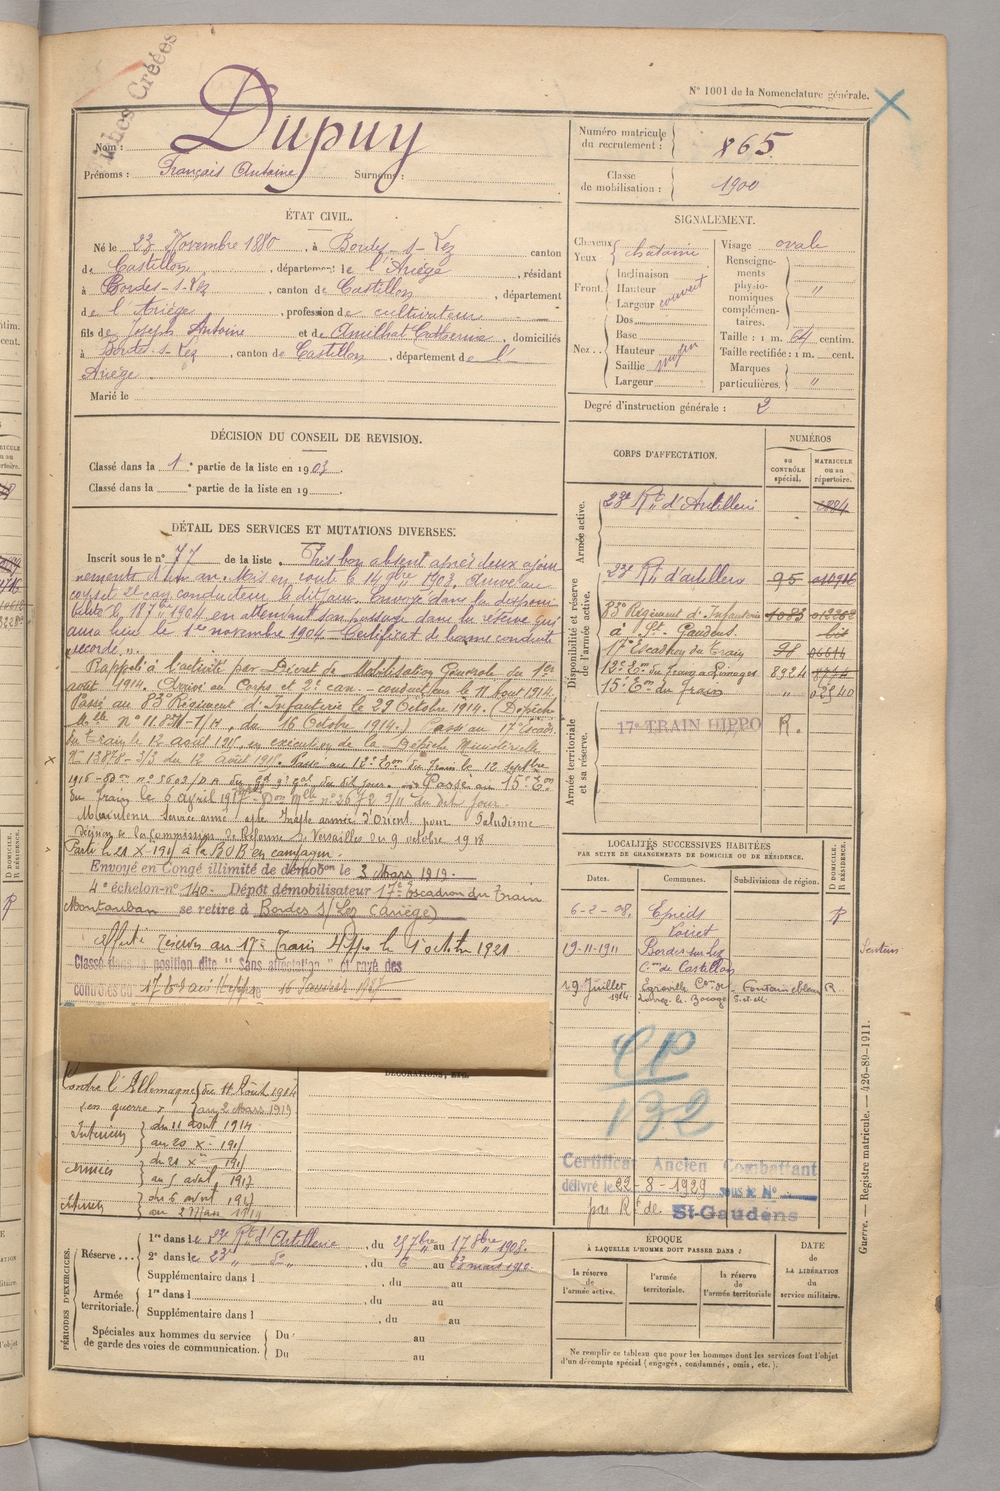 fiches Créées
N° 1001 de la Nomenclature générale.
Nom : Dupuy
Prénoms : Français Antoine Surnoms :
Numéro matricule du recrutement : 865
Classe de mobilisation : 1900
ÉTAT CIVIL.
Né le 23 Novembre 1880, à Bordes-s-Lez canton
de Castillon, département de l'Ariège, résidant
à Bordes-s-Lez, canton de Castillon, département
de l'Ariège, profession de cultivateur
fils de Joseph Antoine et de Amilhat Catherine, domiciliés
à Bordes-s-Lez, canton de Castillon, département de l'
Ariège.
Marié le
SIGNALEMENT.
Cheveux
Yeux châtains
Front. Inclinaison
Hauteur
Largeur couvert
Nez.. Dos
Base
Hauteur
Saillie moyen
Largeur
Visage ovale
Renseignements physionomiques complémentaires. "
Taille : 1 m. 64 centim.
Taille rectifiée : 1 m. cent.
Marques particulières. "
Degré d'instruction générale : 2
DÉCISION DU CONSEIL DE REVISION.
Classé dans la 1e partie de la liste en 1903.
Classé dans la e partie de la liste en 19
DÉTAIL DES SERVICES ET MUTATIONS DIVERSES.
Inscrit sous le n° 77 de la liste. Pris bon absent après deux ajour
nements d'un an. Mis en route le 14 9bre 1903. Arrivé au
corps et 2e can. conducteur le dit jour. Envoyé dans la disponi
bilité le 18 7bre 1904 en attendant son passage dans la réserve qui
aura lieu le 1er novembre 1904. Certificat de bonne conduite
accordé.
Rappelé à l'activité par Décret de Mobilisation Générale du 1er
août 1914. Arrivé au Corps et 2e can. - conducteur le 11 Août 1914.
Passé au 83e Régiment d'Infanterie le 29 Octobre 1914. (Dépêche
Mlle n° 11.834-1/H, du 16 Octobre 1914.) Passé au 17e Escad.
du train le 12 août 1915, en exécution de la Dépêche Ministérielle
N° 13878-3/3 du 12 août 1915. Passé au 12e Eon du Train le 12 septbre
1916 - Don n° 5609/DA du Gd Qr Gal du dit jour. Passé au 15e Eon
du Train le 6 avril 1917 - Don Mlle n° 2672 3/11 du dit jour.
Maintenu Service armé apte Inapte armée d'Orient pour Paludisme
Décision de la Commission de Réforme de Versailles du 9 octobre 1918
Parti le 21 X-1915 à la BOB en campagne.
Envoyé en Congé illimité de démobon le 3 Mars 1919.
4e échelon-n° 140. Dépôt démobilisateur 17e Escadron du Train
Montauban se retire à Bordes s/Lez (Ariège)
Affecté réserves au 17e Train Hippo le 1 octobre 1921
Classé dans la position dite "Sans affectation" et rayé des
contrôles du
CORPS D'AFFECTATION.
NUMÉROS
au CONTRÔLE spécial.
MATRICULE ou au répertoire.
Armée active.
23e Rt d'Artillerie 2884
Disponibilité et réserve de l'armée active.
23e Rt d'artillerie 95 010916
83e Régiment d'Infanterie 1083 013202
à St. Gaudens. bis
17e Escadron du Train 91 06614
12e Eon du Train à Limoges 8924 8774
15e Eon du Train " 02940
Armée territoriale et sa réserve.
17e TRAIN HIPPO R.
LOCALITÉS SUCCESSIVES HABITÉES
PAR SUITE DE CHANGEMENTS DE DOMICILE OU DE RÉSIDENCE.
Dates. Communes. Subdivisions de région. D DOMICILE. R RÉSIDENCE.
6-2-08. Epieds R
Loiret
19-11-1911 Bordes sur Lez Sentein
Con de Castillon
29 Juillet 1914 Egreville Con de Lorrez-le-Bocage Fontainebleau S.et.M. R
CP
132
Certificat Ancien Combattant
délivré le 22-8-1929 sous le N°
par Rt de St-Gaudens
DÉCORATIONS, ETC.
Contre l'Allemagne du 11 Août 1914
en guerre au 2 Mars 1919
Intérieur du 11 août 1914
au 20 X-1915
Armées du 21 X-1915
au 5 avril 1917
du 6 avril 1917
au 2 Mars 1919
PÉRIODES D'EXERCICES.
Réserve... 1re dans le 23e Rt d'Artillerie, du 25 7bre au 17 8bre 1908.
2e dans le 23e " do ", du 6 au 23 mars 1912.
Supplémentaire dans l , du au
Armée territoriale. 1re dans l , du au
Supplémentaire dans l , du au
Spéciales aux hommes du service de garde des voies de communication. Du au
Du au
ÉPOQUE
À LAQUELLE L'HOMME DOIT PASSER DANS :
la réserve de l'armée active.
l'armée territoriale.
la réserve de l'armée territoriale
DATE de LA LIBÉRATION du service militaire.
Ne remplir ce tableau que pour les hommes dont les services font l'objet
d'un décompte spécial (engagés, condamnés, omis, etc.).
Guerre. — Registre matricule. — 426-89-1911.